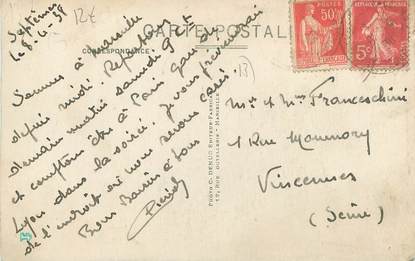 Septèmes
le 8.4.38
12€
CARTE POSTALE
CORRESPONDANCE
Sommes à Marseille
depuis midi. Repartons
demain matin samedi 9 ct
et comptons être à Paris, gare de
Lyon dans la soirée. Je vous préviendrai
de l'endroit où nous serons casés.
Bons Baisers à tous
PHOTO C. DENUC EDITEUR FABRICANT
MARSEILLE
13
Mr et Mme Franceschini
1 Rue Monmory
Vincennes
(Seine)
50c
POSTES
5c